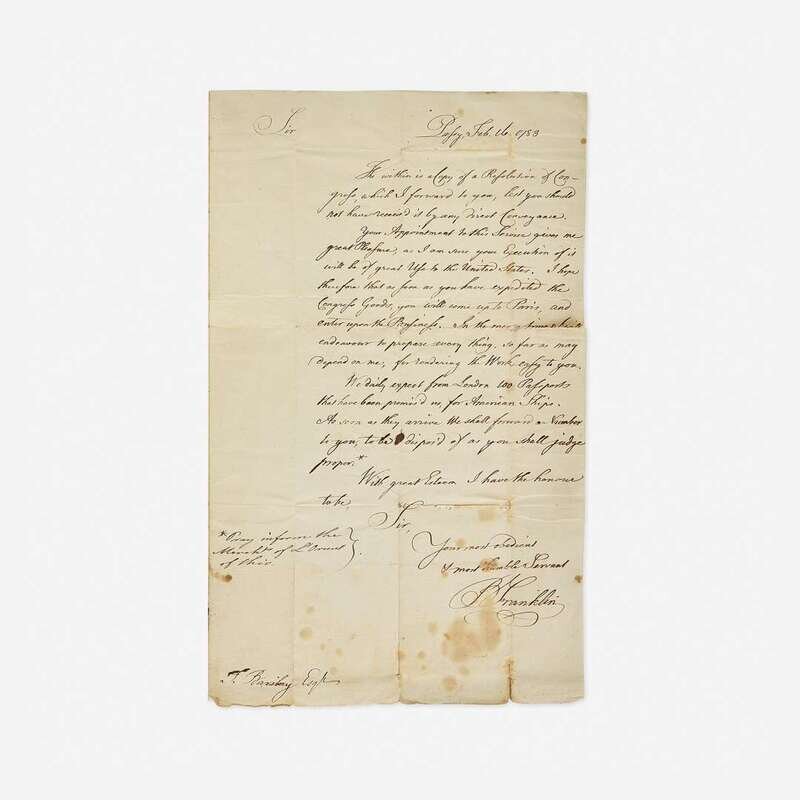 Sir
Passy, Feb. 16. 1783
The within is a Copy of a Resolution of Con-
gress, which I forward to you, lest you should
not have receiv'd it by any direct Conveyance.
Your Appointment to this Service gives me
great Pleasure, as I am sure your Execution of it
will be of great Use to the United States. I hope
therefore that as soon as you have expedited the
Congress Goods, you will come up to Paris, and
enter upon the Business. In the mean time I
endeavour to prepare every thing, so far as may
depend on me, for rendering the Work easy to you.
We daily expect from London 100 Passports
that have been promised us, for American Ships.
As soon as they arrive We shall forward a Number
to you, to be dispos'd of as you shall judge
proper.*
With great Esteem I have the honour
to be,
Sir,
Your most obedient
& most humble Servant
B Franklin
*Pray inform the
Merchts of L'Orient
of this
T. Barclay Esqr